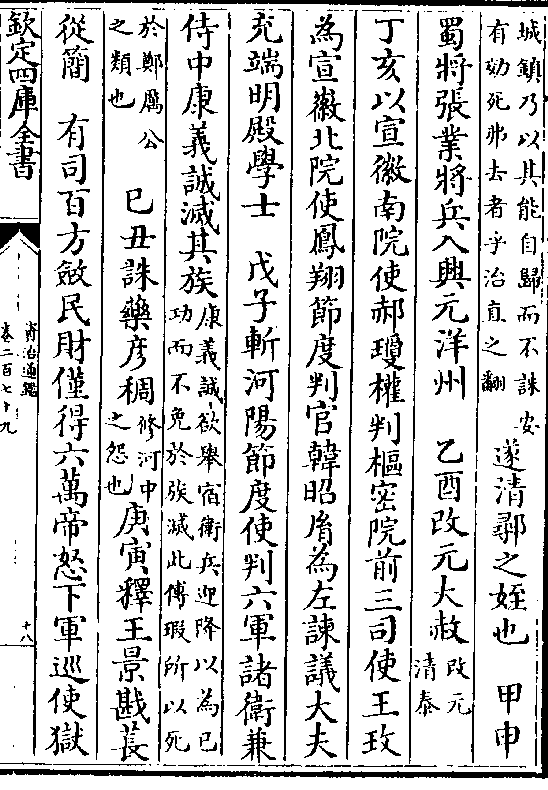 城鎮乃以其能自歸而不誅安
有効死弗去者乎治直之翻
遂清鄩之姪也　甲申
蜀將張業將兵入興元洋州　乙酉改元大赦
改元
清泰
丁亥以宣徽南院使郝瓊權判樞密院前三司使王玫
為宣徽北院使鳳翔節度判官韓昭𦙍為左諫議大夫
充端明殿學士　戊子斬河陽節度使判六軍諸衛兼
侍中康義誠滅其族
康義誠欲舉宿衛兵迎降以為已
功而不免於族滅此傅瑕所以死
於鄭厲公
之類也
巳丑誅藥彦稠
修河中
之怨也
庚寅釋王景戡萇
從簡　有司百方斂民財僅得六萬帝怒下軍巡使獄
欽定四庫全書
資治通鑑
卷二百七十九
十八